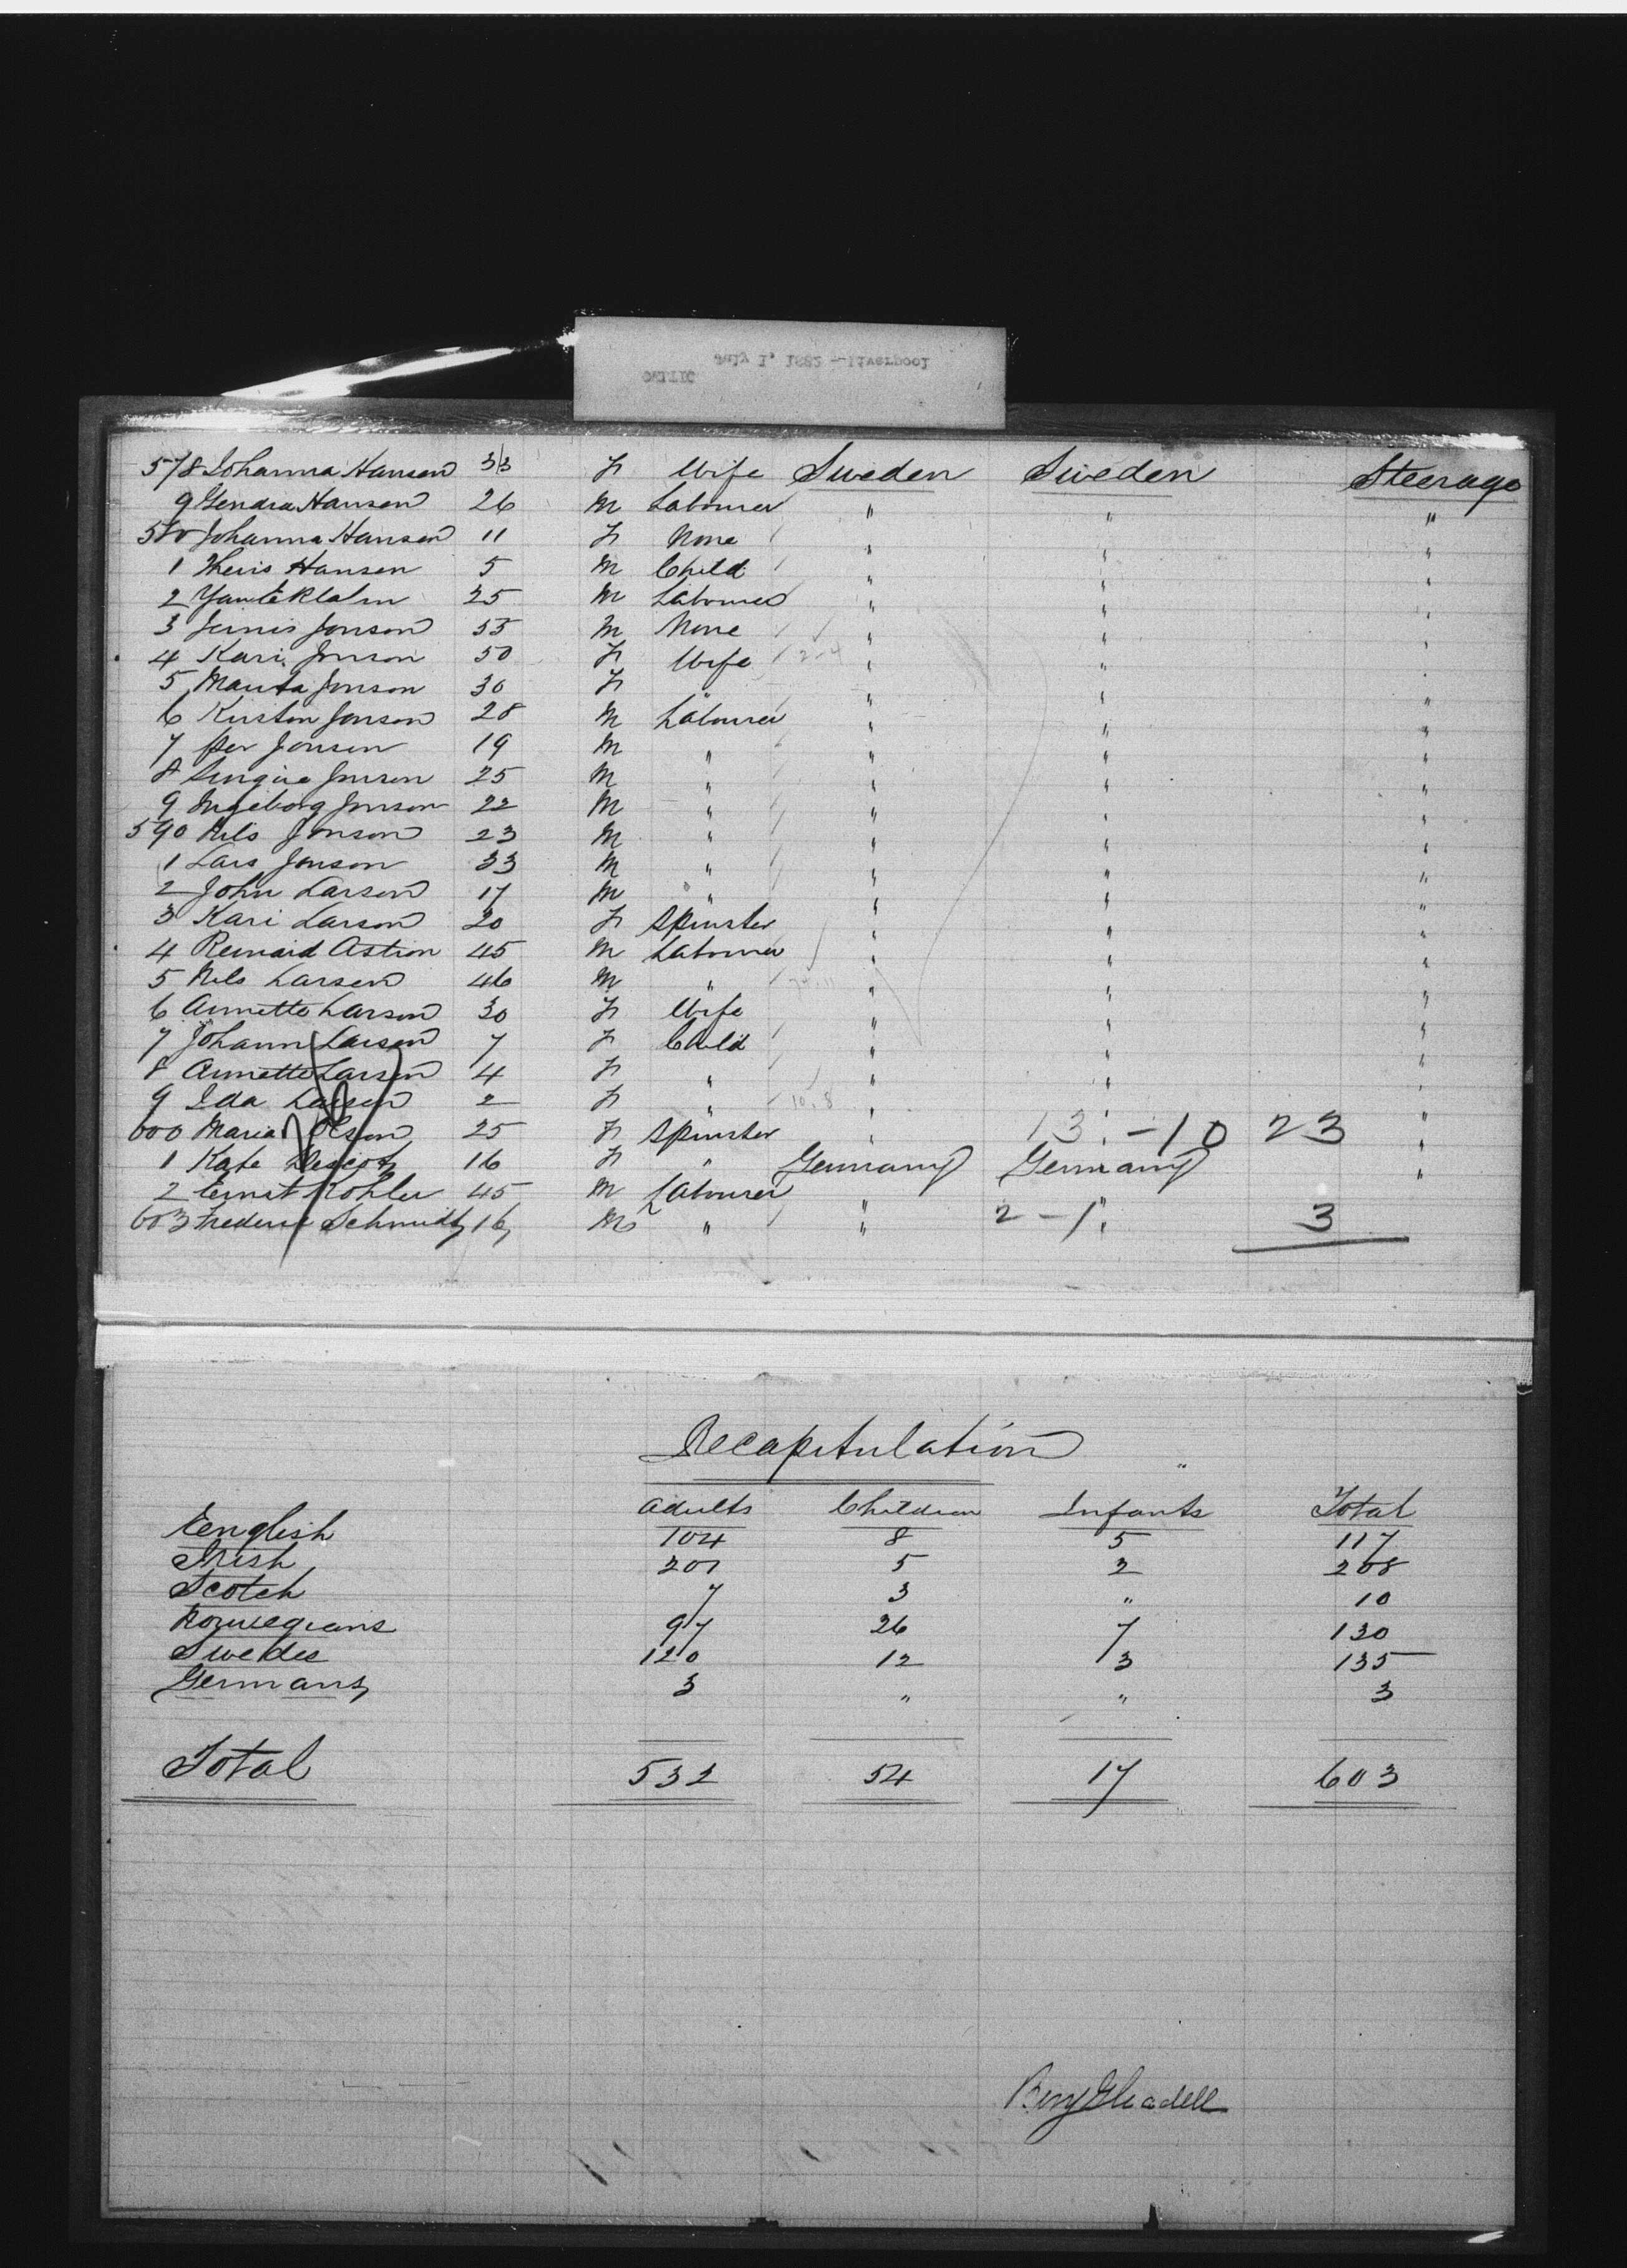 CELTIC
July 1, 1882 - Liverpool
578 Johanna Hansen 33 F Wife Sweden Sweden Steerage
9 Hansen 26 M Labourer " " "
580 Johanna Hansen 11 F None " " "
1 Hansen 5 M Child " " "
2 25 M Labourer " " "
3 Jonson 55 M None " " "
4 Kari Jonson 50 F Wife 2-4 " " "
5 Jonson 30 F " " " "
6 Jonson 28 M Labourer " " "
7 Per Jonson 19 M " " " "
8 Jonson 25 M " " " "
9 Ingeborg Jonson 22 M " " " "
590 Nils Jonson 23 M " " " "
1 Lars Jonson 33 M " " " "
2 John Larson 17 M " " " "
3 Kari Larson 20 F Spinster " " "
4 45 M Labourer " " "
5 Nils Larsen 46 M " " " "
6 Annette Larson 30 F Wife " " "
7 Johann Larson 7 F Child " " "
8 Annette Larsen 4 F " " " "
9 Ida Larsen 2 F " 10.8 " " "
600 Maria Olson 25 F Spinster " 13 - 10 23 "
1 Kate 16 F " Germany Germany "
2 Ernst Kohler 45 M Labourer " "
603 Schmidt 16 M " " 2 - 1 " 3
Recapitulation
Adults Children Infants Total
English 104 8 5 117
Irish 201 5 2 208
Scotch 7 3 " 10
Norwegians 97 26 7 130
Swedes 120 12 3 135
Germans 3 " " 3
Total 532 54 17 603
Benj Gleadell